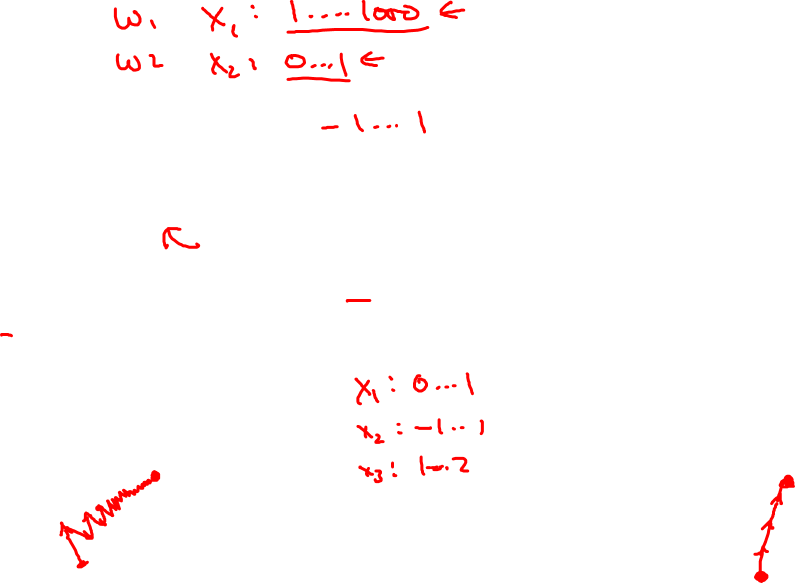 w₁ x₁ : 1.....1000 ←
w₂ x₂ : 0...1 ←
-1...1
x₁ : 0...1
x₂ : -1...1
x₃ : 1...2